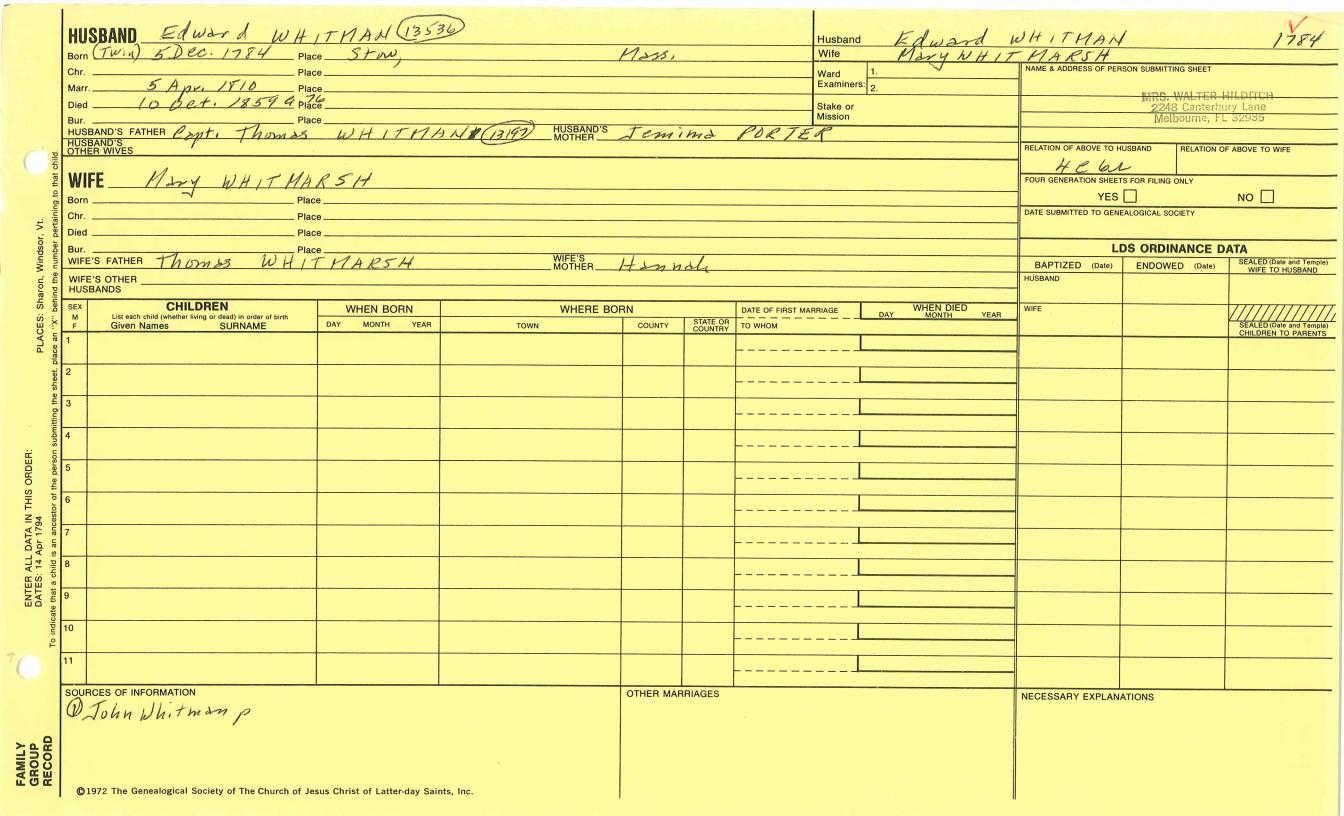 HUSBAND Edward WHITMAN (13536)
Born (Twin) 5 Dec. 1784 Place Stow, Mass.
Chr. Place
Marr. 5 Apr. 1810 Place
Died 10 Oct. 1859 a 76 Place
Bur. Place
HUSBAND'S FATHER Capt. Thomas WHITMAN (13197) HUSBAND'S MOTHER Jemima PORTER
HUSBAND'S OTHER WIVES
WIFE Mary WHITMARSH
Born Place
Chr. Place
Died Place
Bur. Place
WIFE'S FATHER Thomas WHITMARSH WIFE'S MOTHER Hannah
WIFE'S OTHER HUSBANDS
Husband Edward WHITMAN 1784
Wife Mary WHITMARSH
Ward Examiners: 1.
2.
Stake or Mission
NAME & ADDRESS OF PERSON SUBMITTING SHEET
MRS. WALTER HILDITCH
2248 Canterbury Lane
Melbourne, FL 32935
RELATION OF ABOVE TO HUSBAND RELATION OF ABOVE TO WIFE
4C 6r
FOUR GENERATION SHEETS FOR FILING ONLY
YES NO
DATE SUBMITTED TO GENEALOGICAL SOCIETY
LDS ORDINANCE DATA
BAPTIZED (Date) ENDOWED (Date) SEALED (Date and Temple) WIFE TO HUSBAND
HUSBAND
WIFE
SEALED (Date and Temple) CHILDREN TO PARENTS
SEX M F
CHILDREN
List each child (whether living or dead) in order of birth
Given Names SURNAME
WHEN BORN
DAY MONTH YEAR
WHERE BORN
TOWN COUNTY STATE OR COUNTRY
DATE OF FIRST MARRIAGE
TO WHOM
WHEN DIED
DAY MONTH YEAR
1
2
3
4
5
6
7
8
9
10
11
SOURCES OF INFORMATION
① John Whitman p
OTHER MARRIAGES
NECESSARY EXPLANATIONS
©1972 The Genealogical Society of The Church of Jesus Christ of Latter-day Saints, Inc.
FAMILY GROUP RECORD
ENTER ALL DATA IN THIS ORDER:
DATES: 14 Apr 1794
PLACES: Sharon, Windsor, Vt.
To indicate that a child is an ancestor of the person submitting the sheet, place an "X" behind the number pertaining to that child.